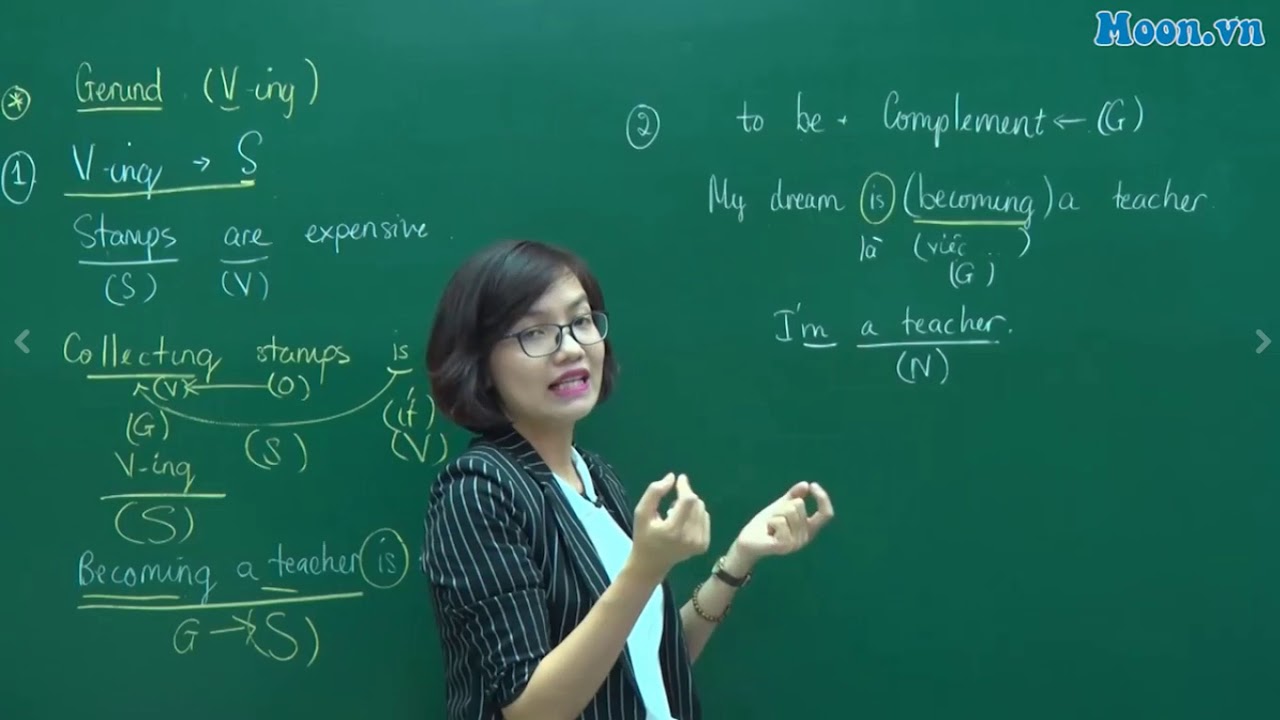 Moon.vn
* Gerund (V-ing)
① V-ing → S
Stamps are expensive
(S) (V)
Collecting stamps is
(V) ← (O) (it)
(G) (S) (V)
V-ing
(S)
Becoming a teacher is
G → (S)
② to be + Complement ← (G)
My dream is (becoming) a teacher.
là (việc ...)
(G)
I'm a teacher.
(N)